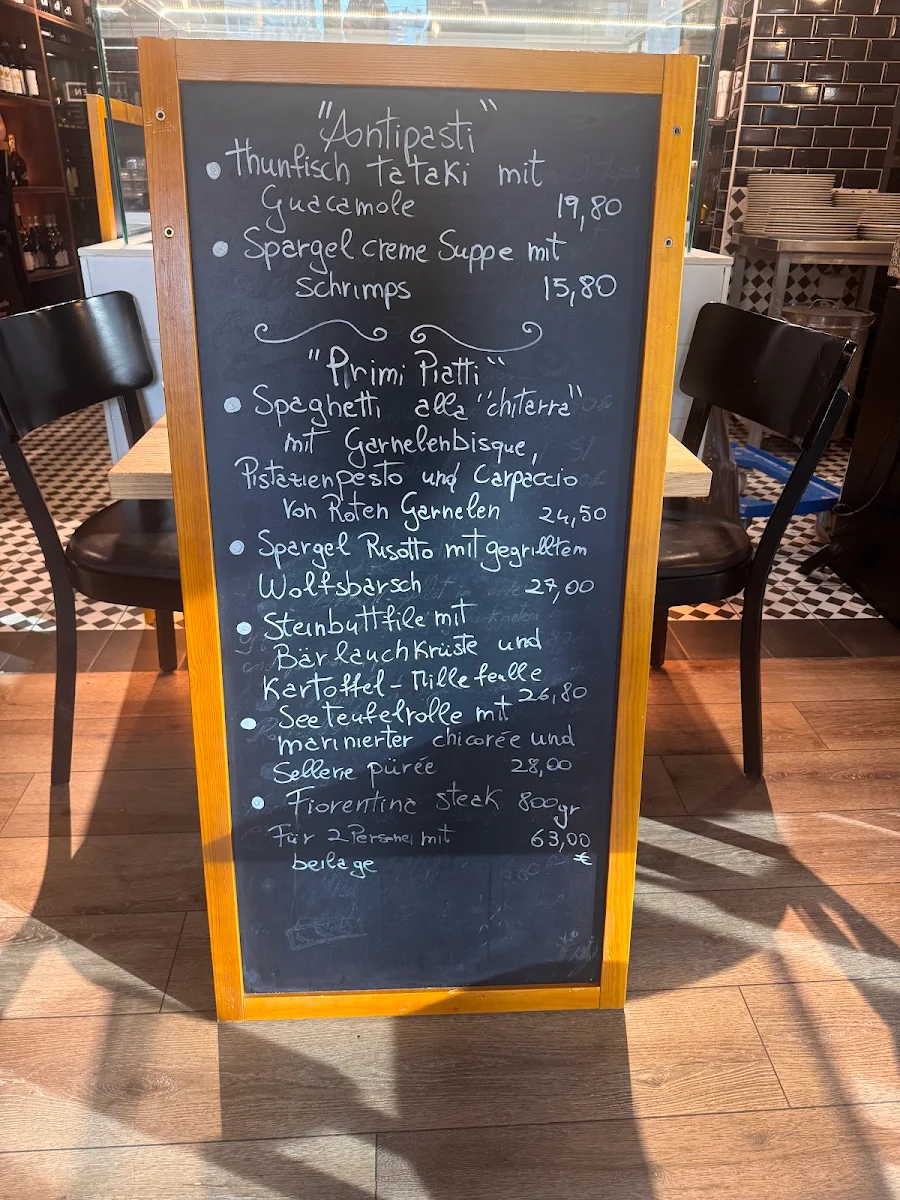 "Antipasti"
• Thunfisch Tataki mit
Guacamole 19,80
• Spargel creme Suppe mit
schrimps 15,80
"Primi Piatti"
• Spaghetti alla "chitarra"
mit Garnelenbisque,
Pistazienpesto und Carpaccio
von Roten Garnelen 24,50
• Spargel Risotto mit gegrilltem
Wolfsbarsch 27,00
• Steinbuttfile mit
Bärlauchkruste und
Kartoffel-Millefeulle 26,80
• Seeteufelrolle mit
marinierter chicorée und
Sellerie pürée 28,00
• Fiorentina steak 800gr
Für 2 Personen mit 63,00
beilage €